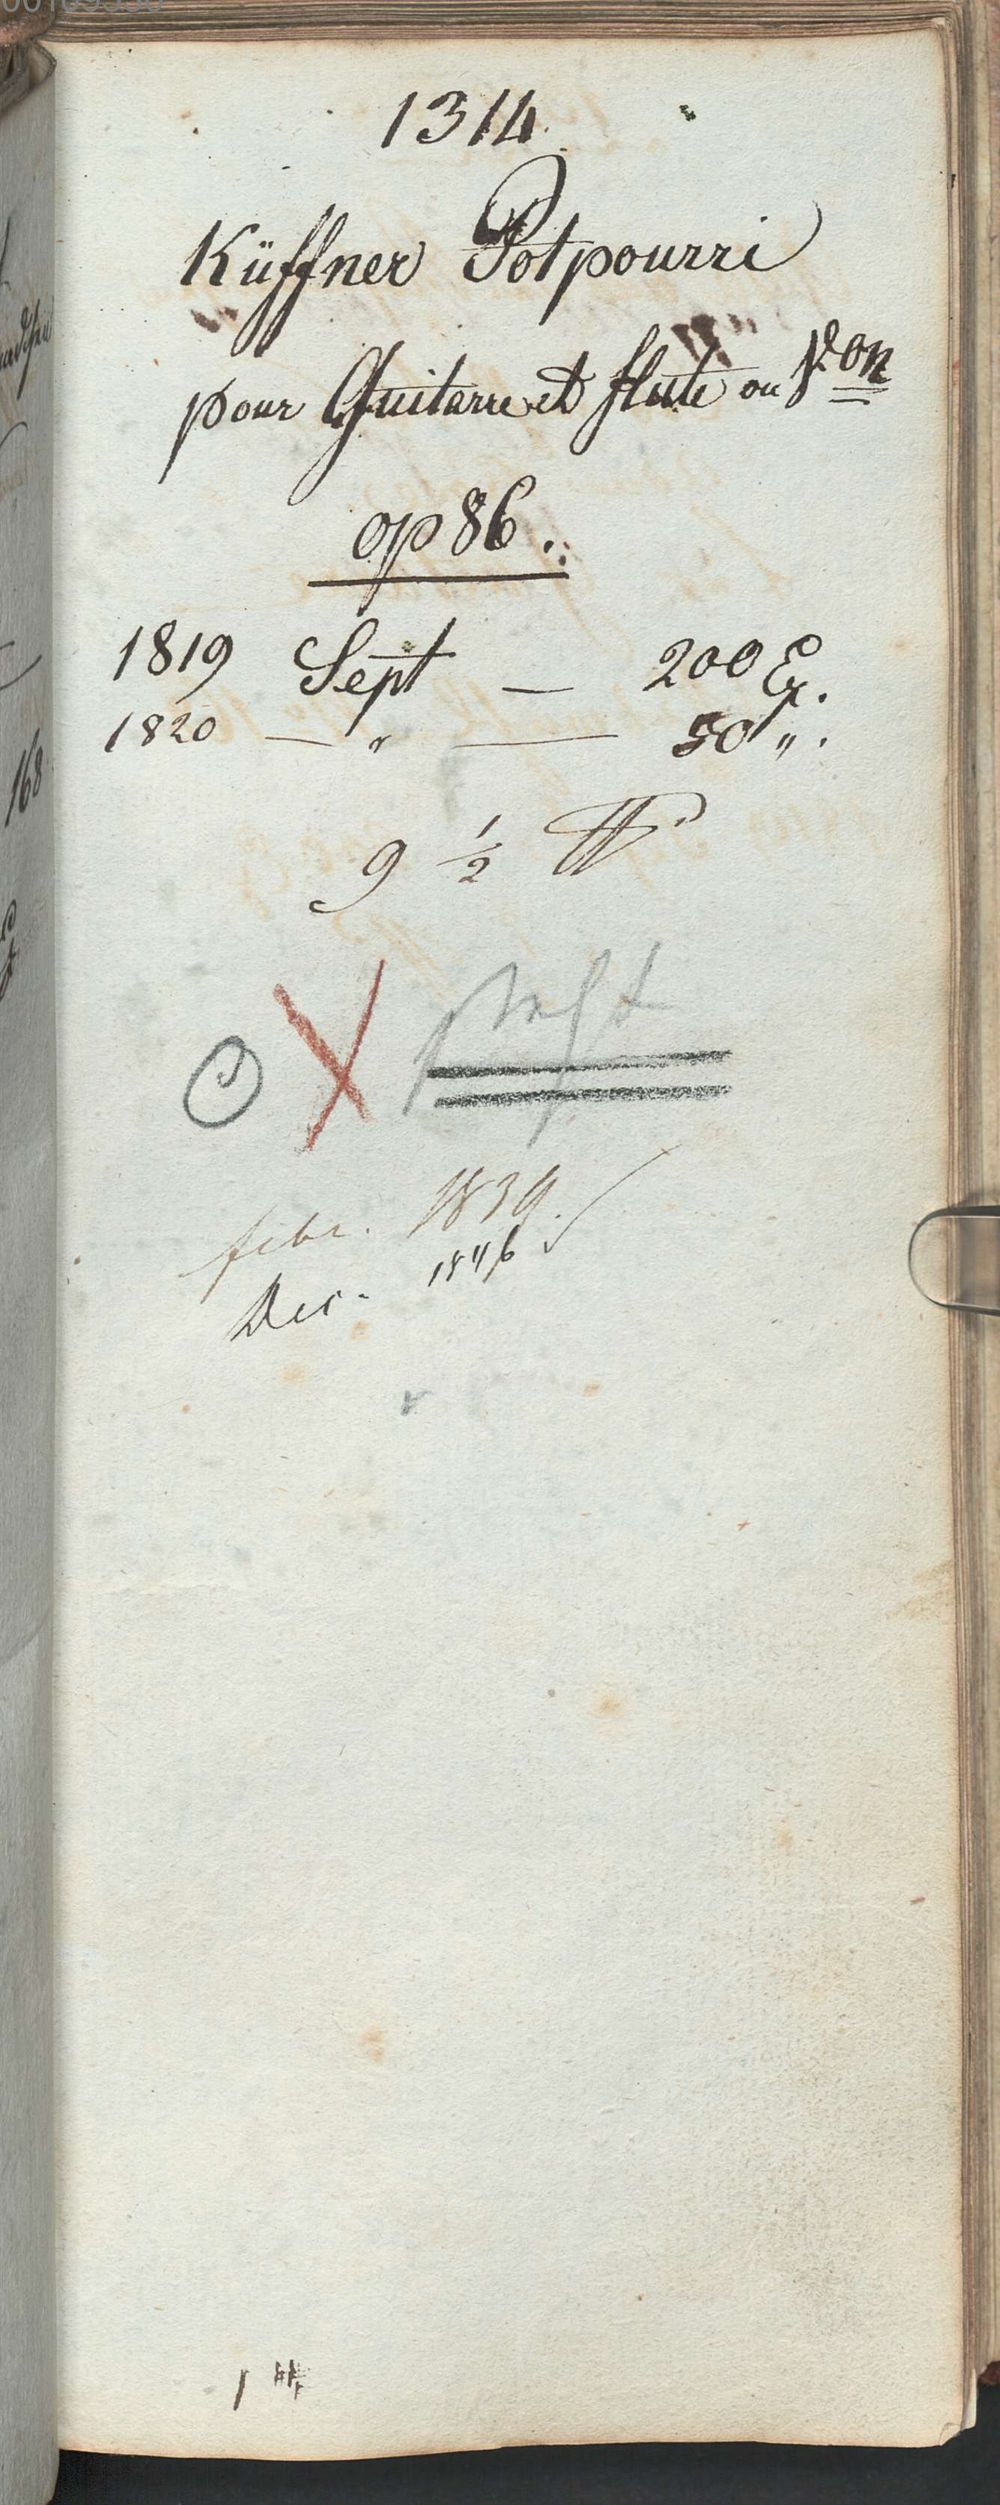 1314.
Küffner Potpourri
pour Guitarre et flute ou Von
op 86.
1819 Sept — 200 Ex.
1820 — " — 50 ".
9 ½ ℔
febr. 1839.
Dec. 1846
168
1